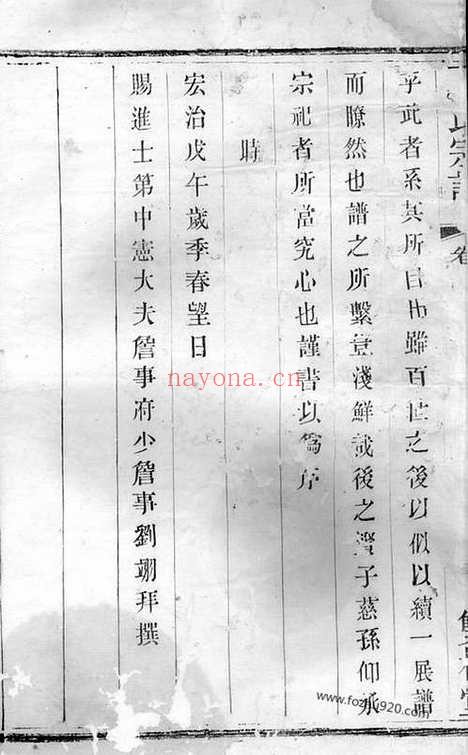 氏宗譜
卷
乎武者系其所自出雖百世之後以似以續一展譜
而瞭然也譜之所繫豈淺鮮哉後之孝子慈孫仰承
宗祀者所當究心也謹書以為序
時
宏治戊午歲季春望日
賜進士第中憲大夫詹事府少詹事劉翊拜撰
nayona.cn